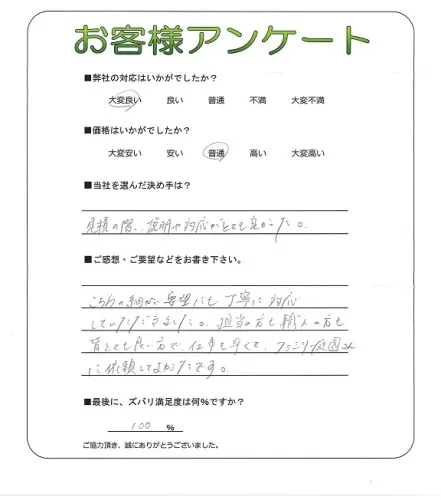 お客様アンケート
■弊社の対応はいかがでしたか?
大変良い 良い 普通 不満 大変不満
■価格はいかがでしたか?
大変安い 安い 普通 高い 大変高い
■当社を選んだ決め手は?
見積の際、説明や対応がとても良かった。
■ご感想・ご要望などをお書き下さい。
こちらの細かい要望にも丁寧に対応
していただきました。担当の方も職人の方も
皆とても良い方で、仕事も早くて、ファミリー庭園さん
に依頼してよかったです。
■最後に、ズバリ満足度は何%ですか?
100 %
ご協力頂き、誠にありがとうございました。